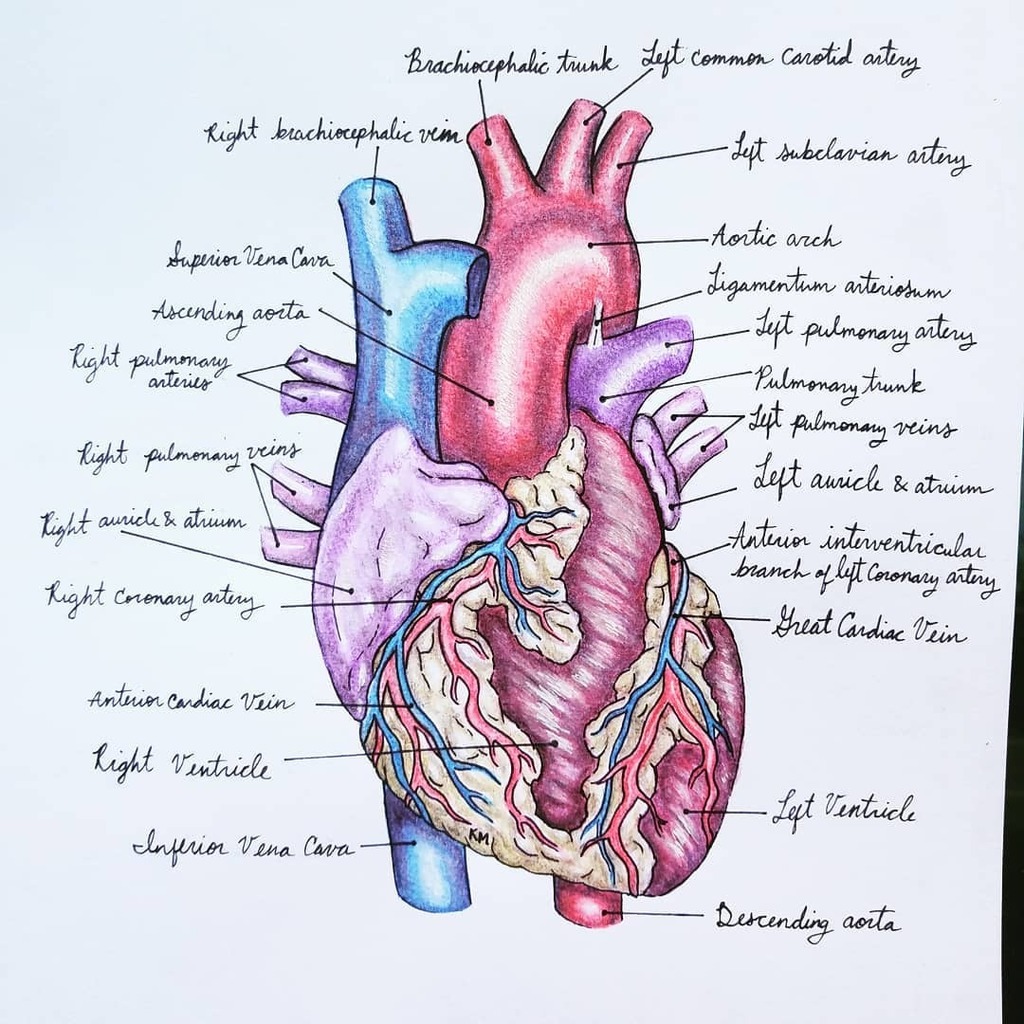 Brachiocephalic trunk
Left common carotid artery
Right brachiocephalic vein
Left subclavian artery
Aortic arch
Superior Vena Cava
Ligamentum arteriosum
Ascending aorta
Left pulmonary artery
Right pulmonary
arteries
Pulmonary trunk
Left pulmonary veins
Right pulmonary veins
Left auricle & atrium
Right auricle & atrium
Anterior interventricular
branch of left Coronary artery
Right Coronary artery
Great Cardiac Vein
Anterior Cardiac Vein
Right Ventricle
Left Ventricle
KM
Inferior Vena Cava
Descending aorta